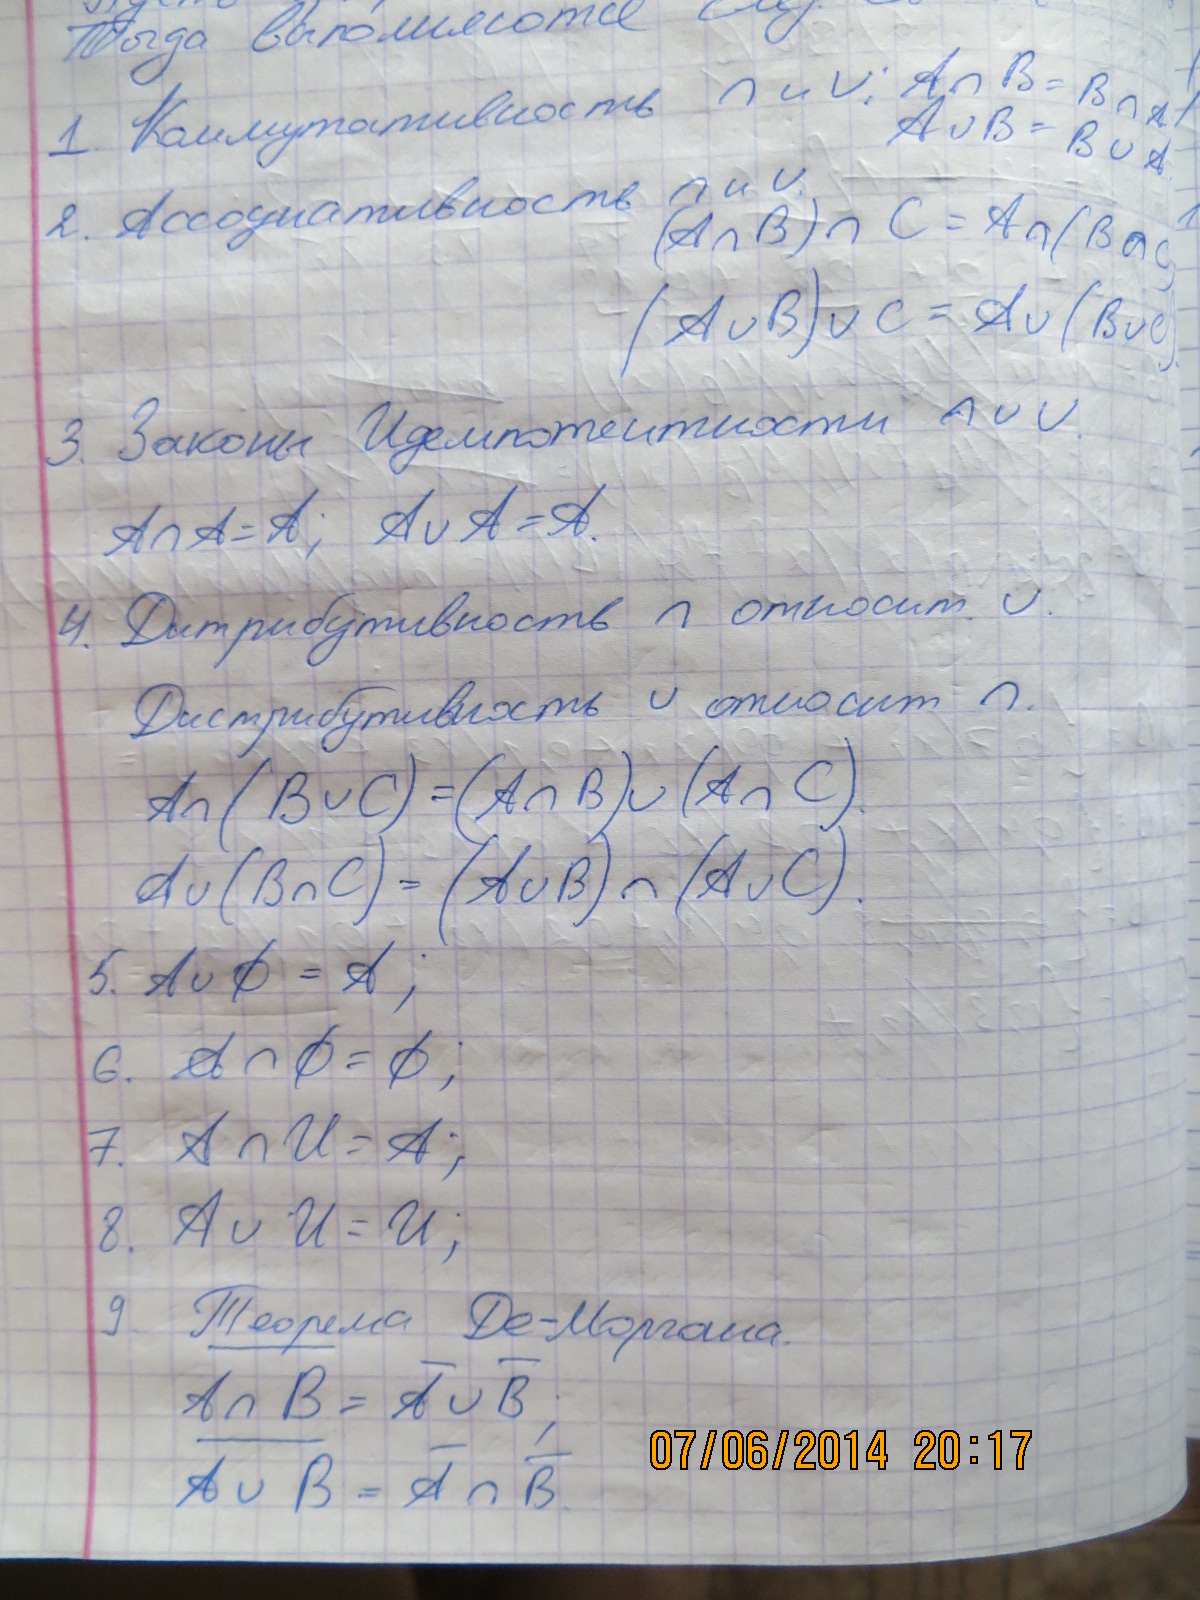 Тогда выполняются след.
1. Коммутативность ∩ и ∪: A∩B = B∩A
A∪B = B∪A
2. Ассоциативность ∩ и ∪.
(A∩B)∩C = A∩(B∩C)
(A∪B)∪C = A∪(B∪C).
3. Законы Идемпотентности ∩ и ∪.
A∩A=A; A∪A=A.
4. Дитрибутивность ∩ относит. ∪.
Дистрибутивность ∪ относит ∩.
A∩(B∪C)=(A∩B)∪(A∩C).
A∪(B∩C)=(A∪B)∩(A∪C).
5. A∪∅ = A;
6. A∩∅=∅;
7. A∩U=A;
8. A∪U=U;
9 Теорема Де-Моргана.
A∩B = A̅∪B̅;
A̅∪̅B̅ = A̅∩B̅.
07/06/2014 20:17